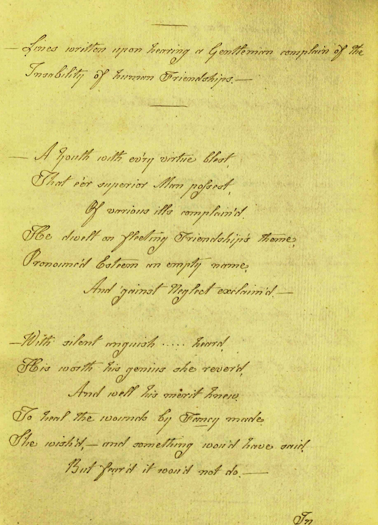 — Lines written upon hearing a Gentleman complain of the
Insability of human Friendships. —
— A Youth with ev'ry virtue blest,
That e'er superior Man possest,
Of various ills complain'd
He dwelt on fleeting Friendship's theme,
Pronounc'd Esteem an empty name,
And 'gainst Neglect exclaim'd. —
— With silent anguish ..... heard,
His worth his genius she rever'd,
And well his merit knew,
To heal the wounds by Fancy made,
She wish'd, — and something wou'd have said,
But fear'd it wou'd not do. —
In